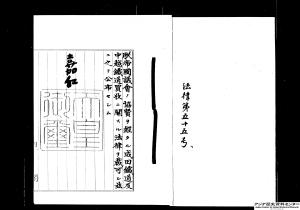 法律第五十五号
朕帝國議會ノ協贊ヲ經タル成田鐵道及
中越鐵道買收ニ關スル法律ヲ裁可シ茲
ニ之ヲ公布セシム
嘉仁
天皇
御璽
アジア歴史資料センター